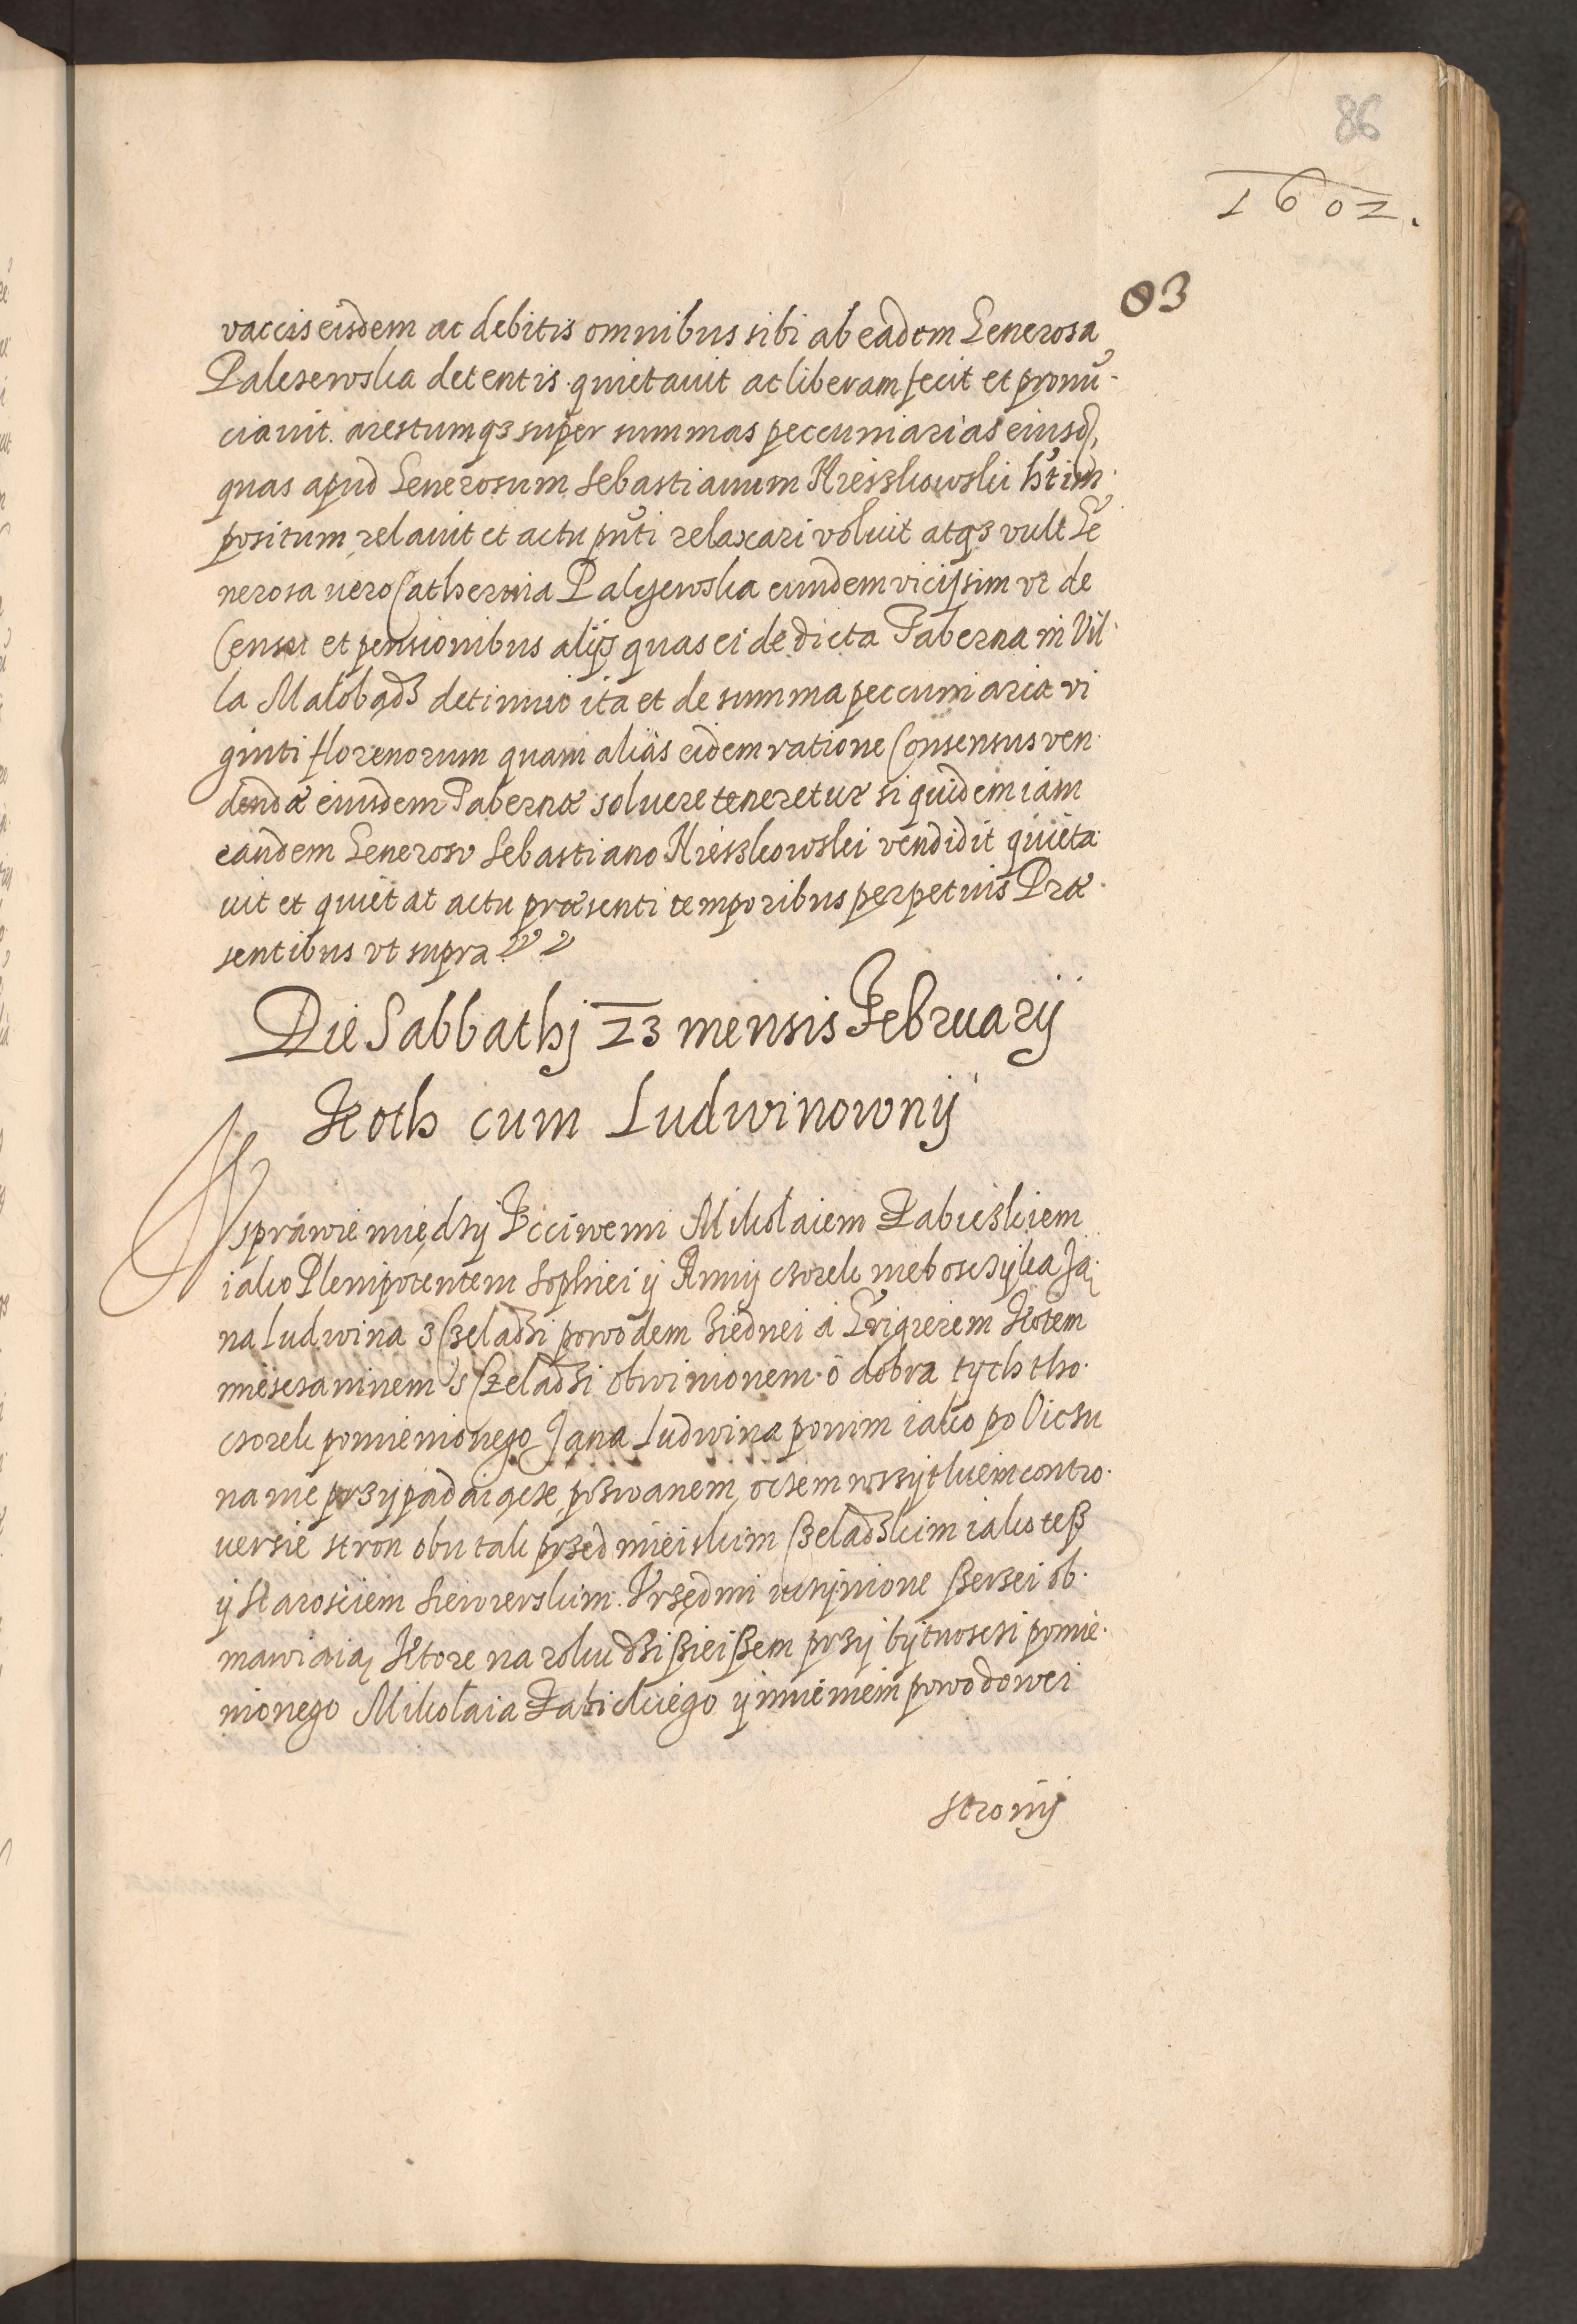 86
1602.
83
vaccis eisdem ac debitis omnibus sibi ab eadem Generosa
Palczewska detentis quietauit ac liberam fecit et pronū-
ciauit. arestumqз super summas peccuniarias eiusd,
quas apud Generosum Sebastianum Mieszkowski ht im-
positum relauit et actu pūti relaxari voluit atqз vult Ge
nerosa uero Catherina Palczewska eundem vicissim vt de
Censu et pensionibus alijs quas ei de dicta Taberna in Vil-
la Malobądз detinuit ita et de summa peccuniaria vi
ginti florenorum quam alias eidem ratione Consensus ven-
dendæ eiusdem Tabernæ soluere teneretur siquidem iam
eandem Generoso Sebastiano Mieszkowski vendidit quieta-
uit et quietat actu præsenti temporibus perpetuis Præ-
sentibus vt supra
Die Sabbathj 23 mensis Februarij
Koth cum Ludwinownij
W sprawie międzij Vcciwemi Mikołaiem Zabickiem
iako Plenipotentem Sophiei ij Annij czorek nieboszczijka Ja-
na Ludwina з Czeladзi powodem з iednei a Grigierem Kotem
miesczaninem s Czeladзi obwinionem o dobra tijch tho
czorek pomienionego Jana Ludwina ponim iako po Oiczu
na nie przijpadaiącze pozwanem, oczem wszijtkiem contro-
uersie stron obu tak przed mieiskim Czeladzkim iako tesz
ij Starosciem Siewierskim Vrzędmi uczijnione szerzei ob-
mawiaią Ktore na roku dзiszieiszem przij bijtnosczi pomie-
nionego Mikołaia Zabickiego ij imieniem powodowei
stronij